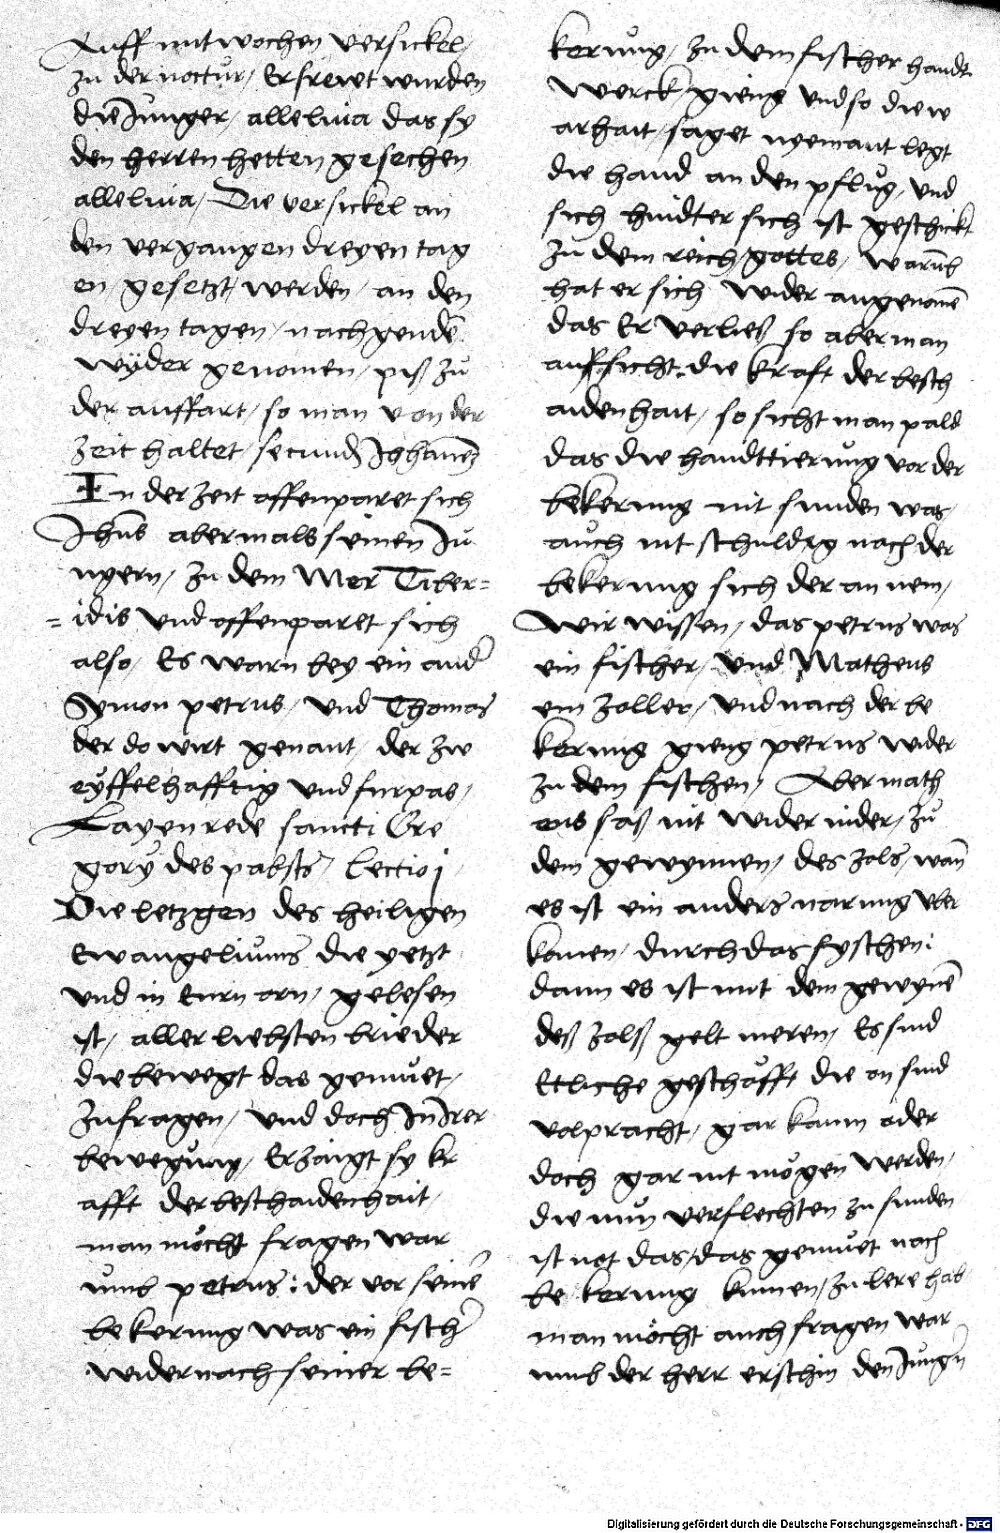 Auff mitwochen versickel
zu der noctur / Erfrewt wurden
die Junger / alleluia das sy
den herren hetten gesechen
alleluia / Die versickel an
den vergangen dreyen tag
en / gesetzt / werden / an den
dreyen tagen / nachgendē
wyder genomen / piß zů
der auffart / so man von der
zeit haltet / secund Johannē
In der zeit offenparet sich
Jhūs abermals seinen Ju
ngern / zu dem Mer Tiber=
=idis vnd offenparet sich
also / Es warn bey ein and
Symon petrus / vnd Thomas
der do wirt genant / der zw
eyffelhafftig vnd furpas /
Layenrede sancti Gre
gory des pabsts / Lectio j
Die letzgen des heiligen
Ewangeliums die yetzt
vnd in Eurn orn / gelesen
ist / aller liebsten brieder
die bewegt das gemuet /
zufragen / vnd doch In Irer
bewegung / Erzaigt sy kr
afft der beschaidenhait /
man möcht fragen war
umb petrus : der vor seinē
bekerung was ein fischer
wider nach seiner be=
kerung / zu dem fischer handt
werck / gieng vnd so die w
arhait / saget nyemant legt
die hand an den pflug / vnd
sich hindter sich ist geschickt
zu dem reich / gottes / Warūb
hat er sich wider angenomē
das Er verließ so aber man
auffsicht die kraft der besch
aidenhait / so sicht man pald
das die handttierung vor der
bekerung nit sunden was /
auch nit schuldig nach der
bekerung sich der an nem /
Wir wissen / das petrus was
ein fischer / vnd Matheus
ein zoller / vnd nach der be
kerung gieng petrus wider
zu dem fischen / Aber math
eus saß nit wider nider / zů
dem gewynnen / des zols / wan̄
es ist ein anders narung vber
komen / durch das fyschen :
dann es ist mit dem gewynē
deß zolß gelt meren / Es sind
Etliche geschöfft die on sind
volpracht / gar kaum oder
doch gar nit mögen werden /
die nun verflechten zu sunden
ist not das / das gemuet nach
be kerung kumen / zu lere hab
man möcht auch fragen war
umb der herr erschin den Jungn
Digitalisierung gefördert durch die Deutsche Forschungsgemeinschaft - DFG